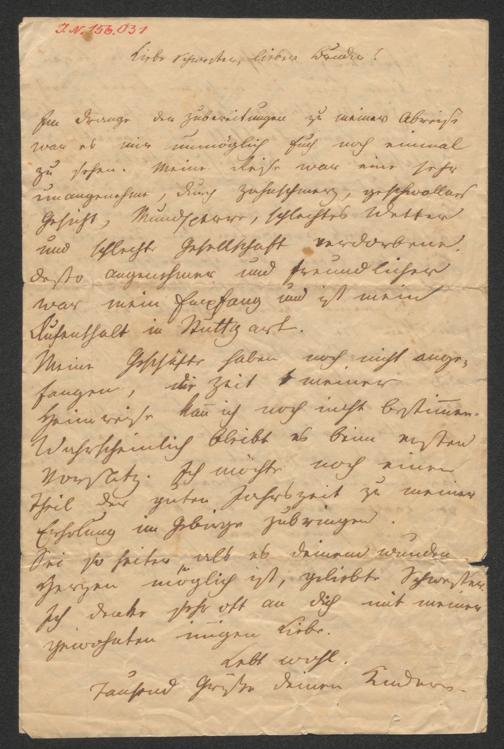 I.N. 156.031
Liebe Schwester, lieber Bruder!
Im Drange der Zubereitungen zu meiner Abreise
war es mir unmöglich Euch noch einmal
zu sehen. Meine Reise war eine sehr
unangenehme, durch Zahnschmerz, geschwollnes
Gesicht, Mundsperre, schlechtes Wetter
und schlechte Gesellschaft verdorbene.
Desto angenehmer und freundlicher
war mein Empfang und ist mein
Aufenthalt in Stuttgart.
Meine Geschäfte haben noch nicht ange-
fangen, die Zeit meiner
Heimreise kann ich noch nicht bestimmen.
Wahrscheinlich bleibt es beim ersten
Vorsatz. Ich möchte noch einen
Theil der guten Jahrszeit zu meiner
Erholung im Gebirge zubringen.
Sei so heiter als es deinem wunden
Herzen möglich ist, geliebte Schwester.
Ich denke sehr oft an dich mit meiner
gewohnten innigen Liebe.
Lebt wohl.
Tausend Grüße deinen Kindern.